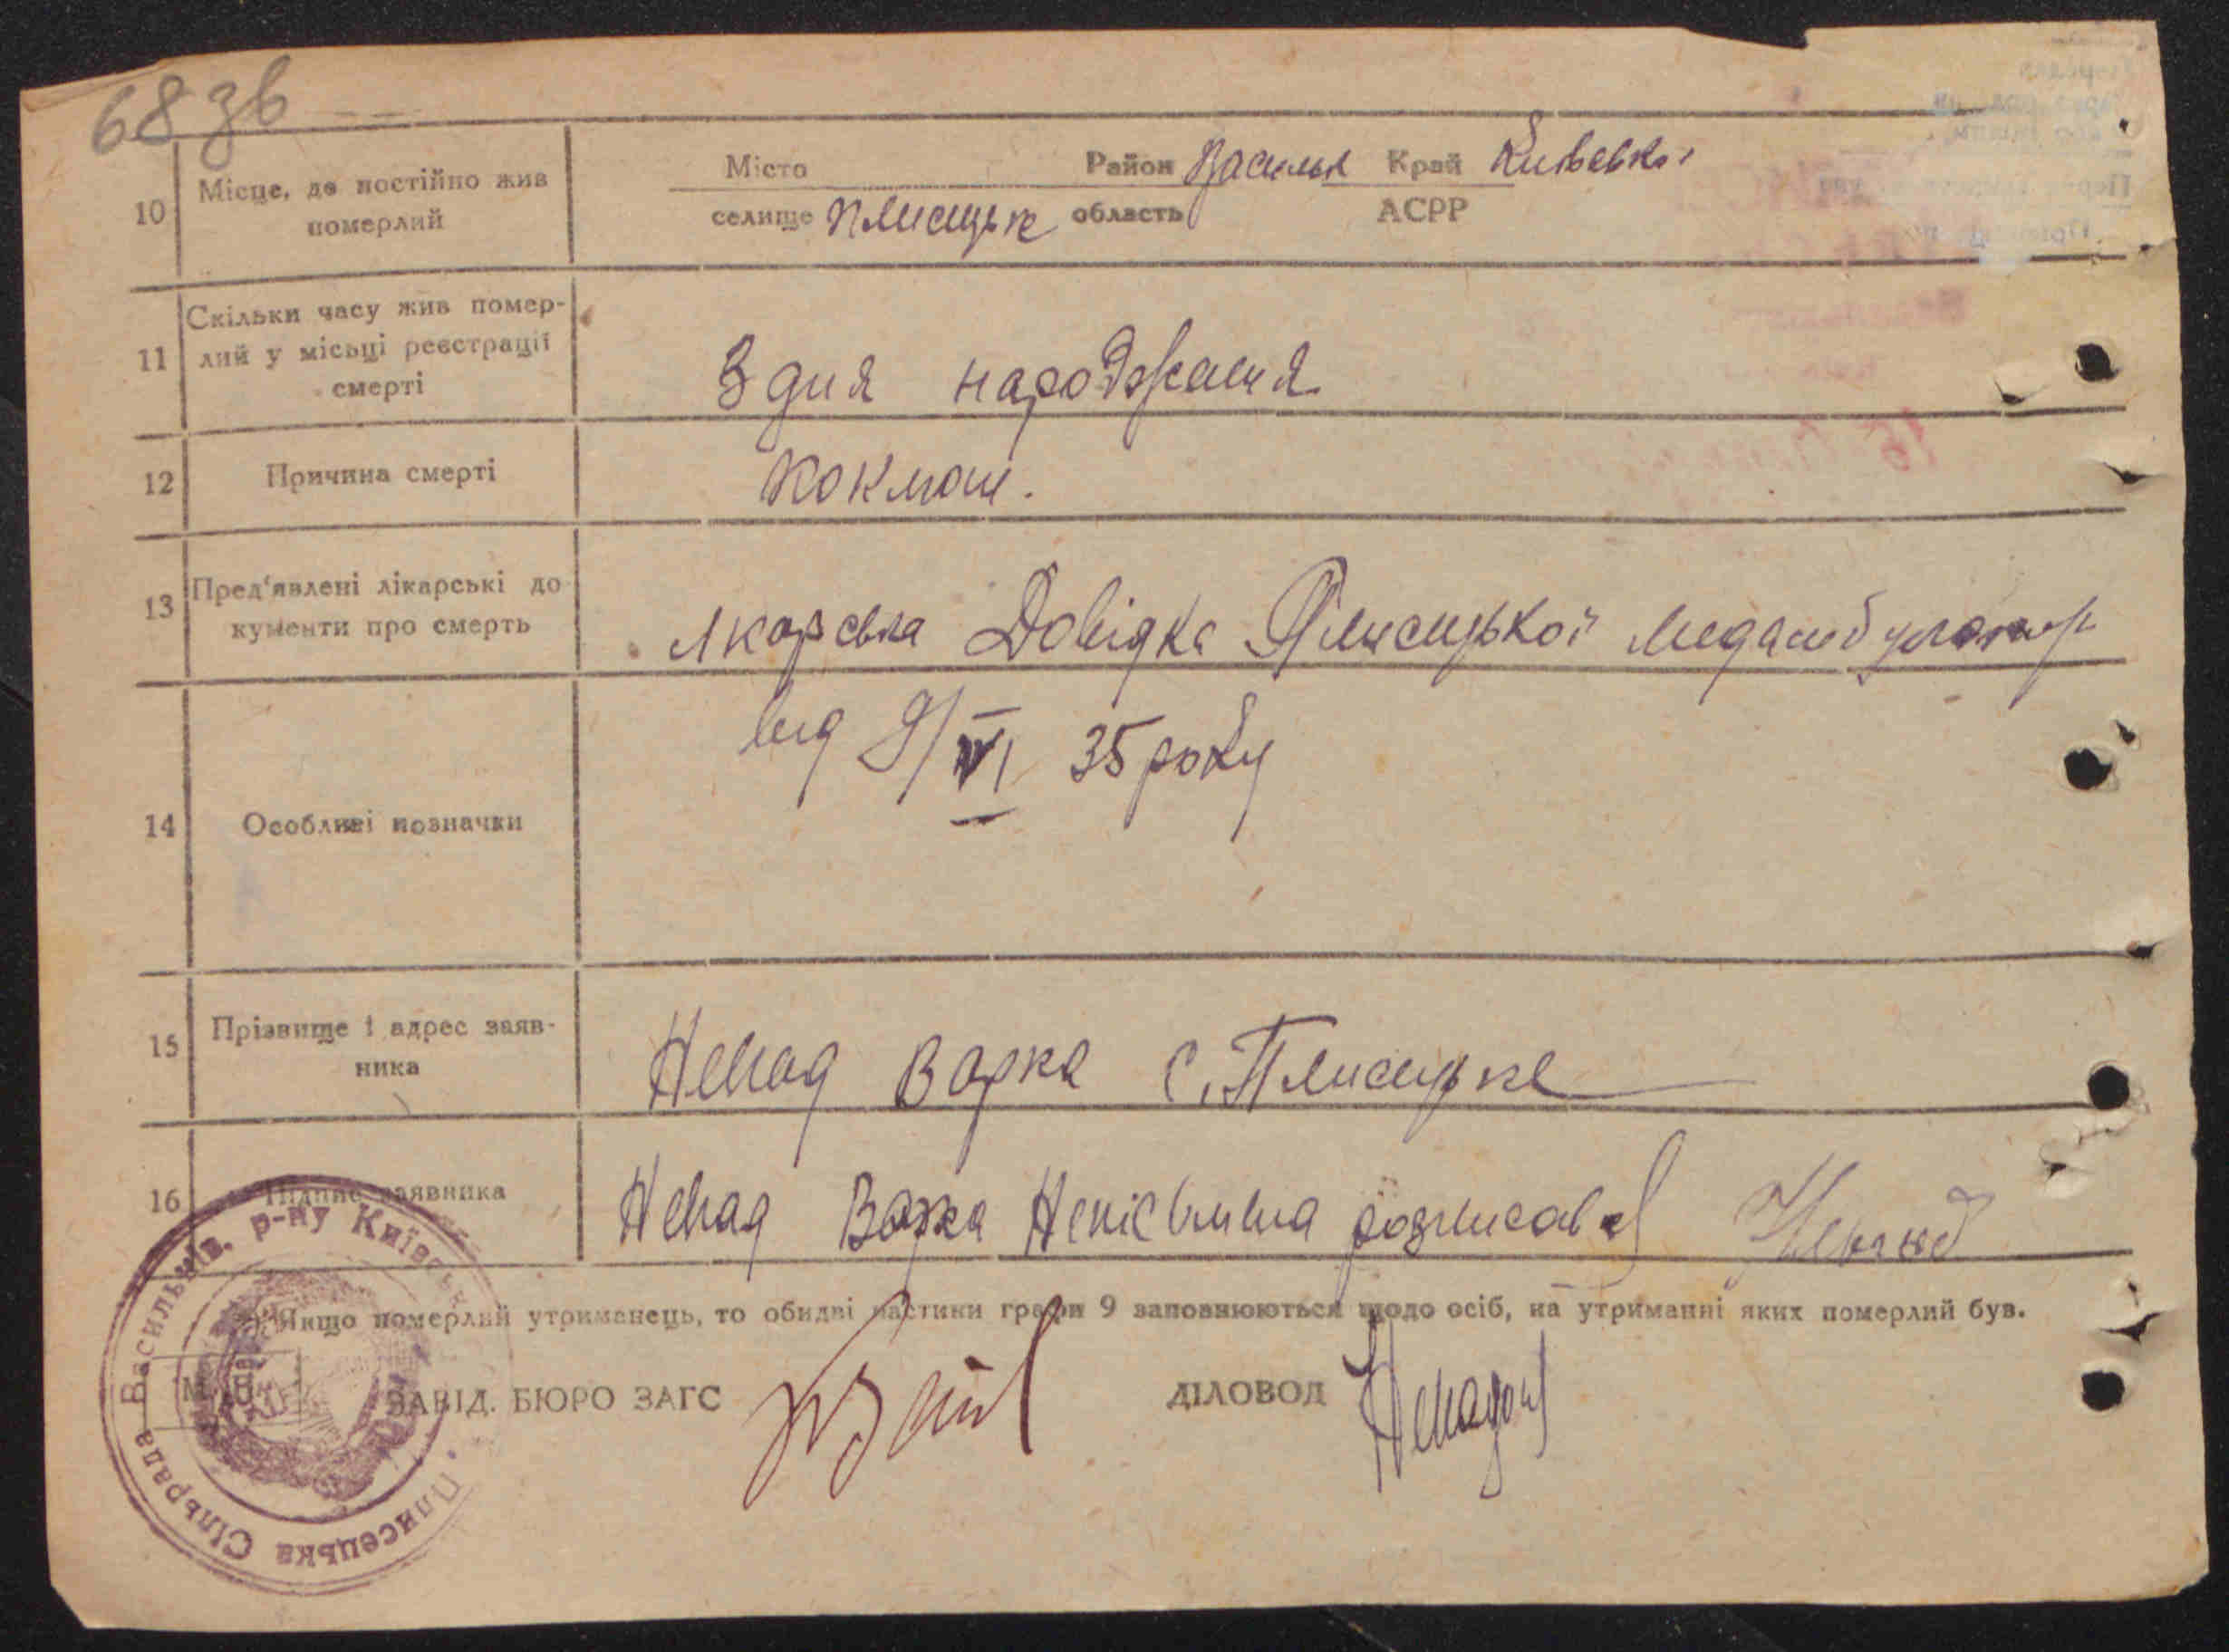 68 зв
10 Місце, де постійно жив померлий
Місто Район Васильк Край Київської
селище Плисецьке область АСРР
11 Скільки часу жив помер-
лий у місьці реєстрації
смерті
З дня народженя
12 Причина смерті
Коклюш.
13 Пред'явлені лікарські до
кументи про смерть
Лкарська Довідка Плисецької медамбулатор
від 9/VI 35 року
14 Особливі позначки
15 Прізвище і адрес заяв-
ника
Ненад Варка с. Плисецьке
16 Підпис заявника
Ненад Варка Неписьмена розписався
*) Якщо померлий утриманець, то обидві частини графи 9 заповнюються щодо осіб, на утриманні яких померлий був.
М. П.
ЗАВІД. БЮРО ЗАГС
ДІЛОВОД
Плисецька Сільрада Васильків. р-ну Київськ